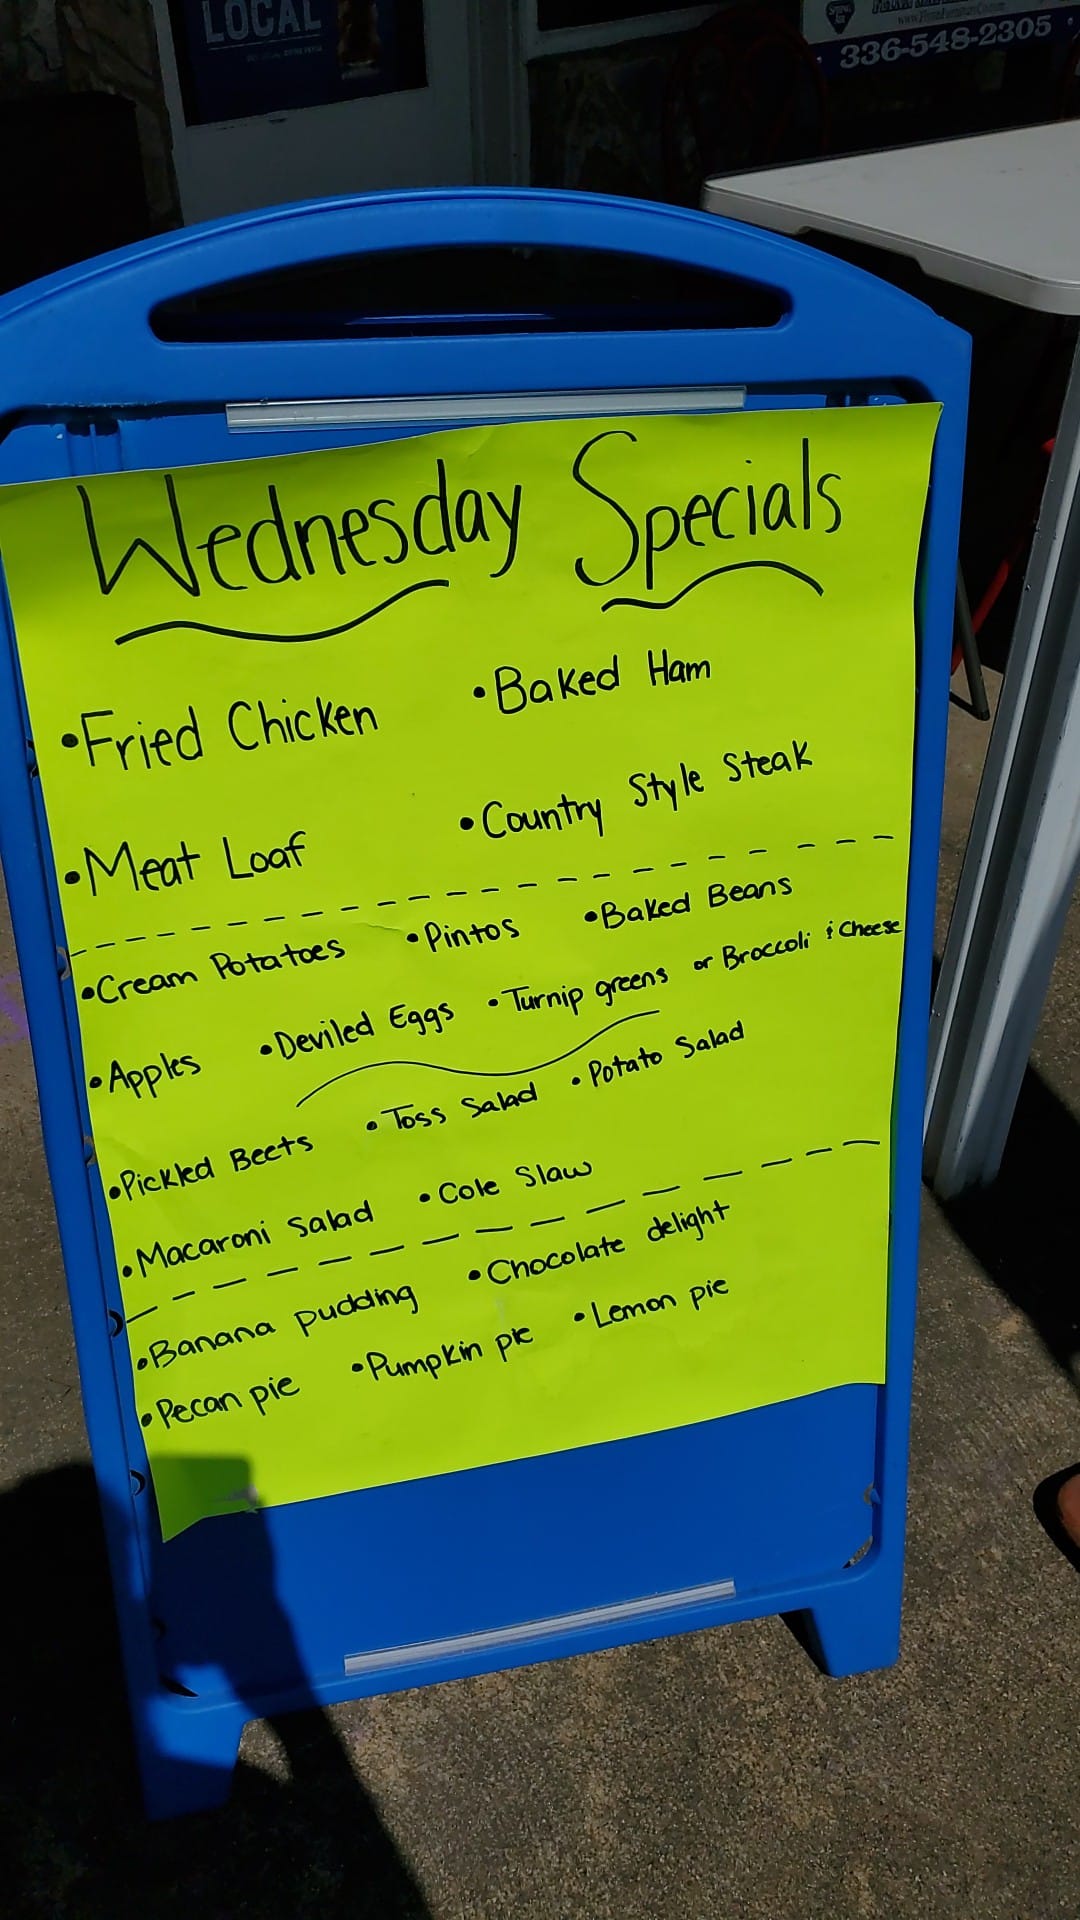 LOCAL
336-548-2305
Wednesday Specials
•Fried Chicken •Baked Ham
•Meat Loaf •Country Style Steak
•Cream Potatoes •Pintos •Baked Beans
•Apples •Deviled Eggs •Turnip greens or Broccoli & Cheese
•Pickled Beets •Toss Salad •Potato Salad
•Macaroni Salad •Cole Slaw
•Banana pudding •Chocolate delight
•Pecan pie •Pumpkin pie •Lemon pie